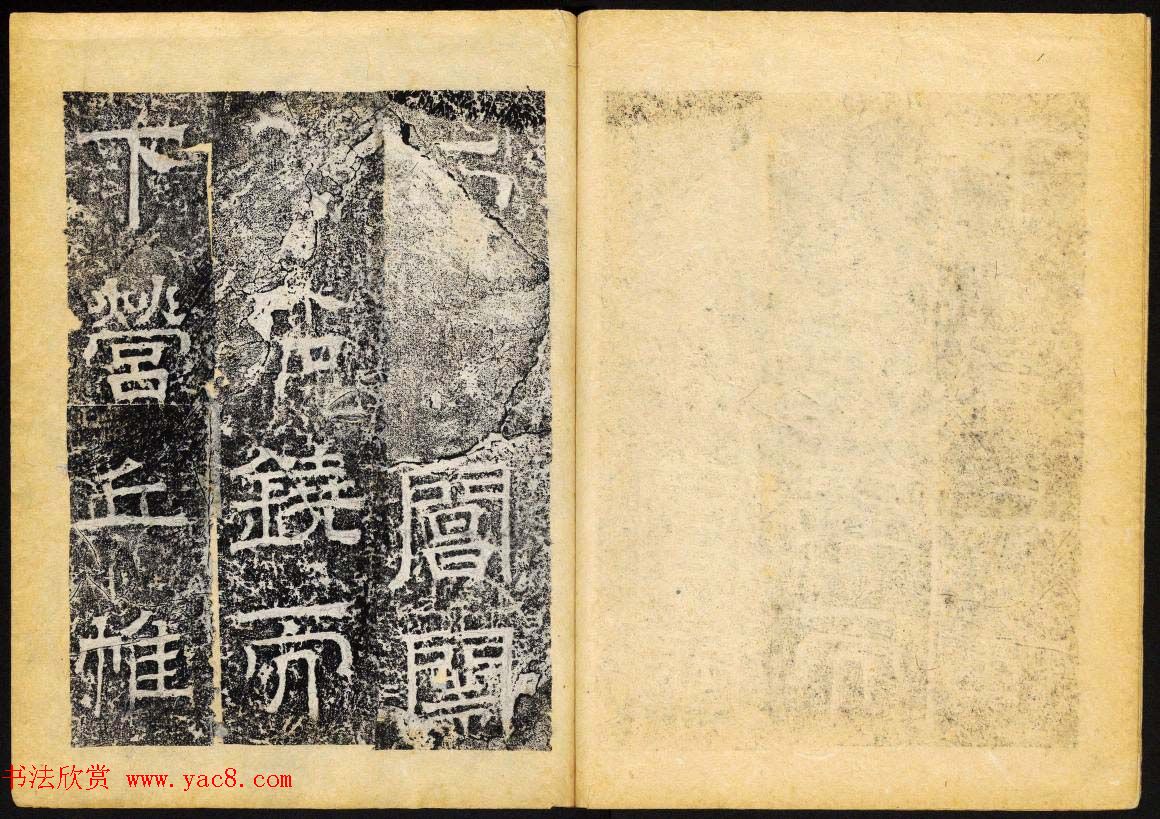 閶闔
若鐃而
下營丘惟
书法欣赏 www.yac8.com